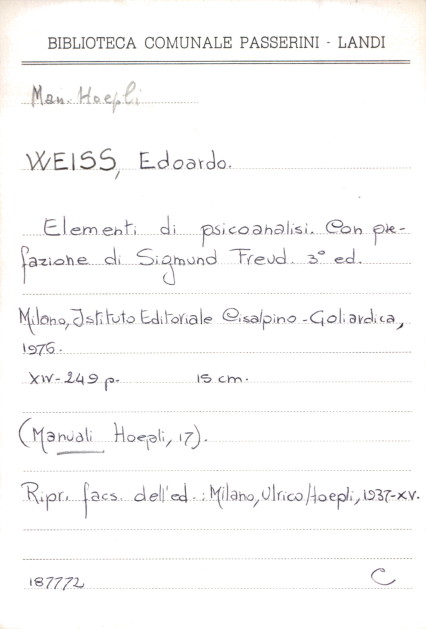 BIBLIOTECA COMUNALE PASSERINI - LANDI
Man. Hoepli
WEISS, Edoardo.
Elementi di psicoanalisi. Con pre-
fazione di Sigmund Freud. 3° ed.
Milano, Istituto Editoriale Cisalpino-Goliardica,
1976.
XIV-249 p. 15 cm.
(Manuali Hoepli, 17).
Ripr. facs. dell'ed.: Milano, Ulrico Hoepli, 1937-XV.
187772 C